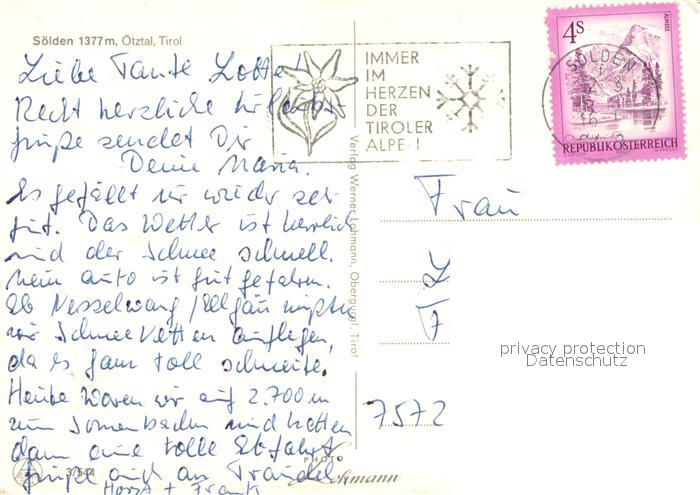 Sölden 1377m, Ötztal, Tirol
Liebe Tante Lotte!
Recht herzliche Urlaubs-
grüße sendet Dir
Deine Maria.
Es gefällt mir wieder sehr
gut. Das Wetter ist herrlich
und der Schnee schnell.
Mein Auto ist gut gefahren.
Ab Nesselwang / Allgäu mußten
wir Schneeketten auflegen,
da es ganz toll schneite.
Heute waren wir auf 2.700 m
zum Sonnenbaden und hatten
dann eine tolle Abfahrt
Grüße auch an Traudel
Horst + Frank
IMMER
IM
HERZEN
DER
TIROLER
ALPEN
SÖLDEN
4S
ALMSEE
REPUBLIK ÖSTERREICH
Verlag Werner Lohmann, Obergurgl, Tirol
Frau
L
F
7572
privacy protection
Datenschutz
PHOTO
Lohmann
37544